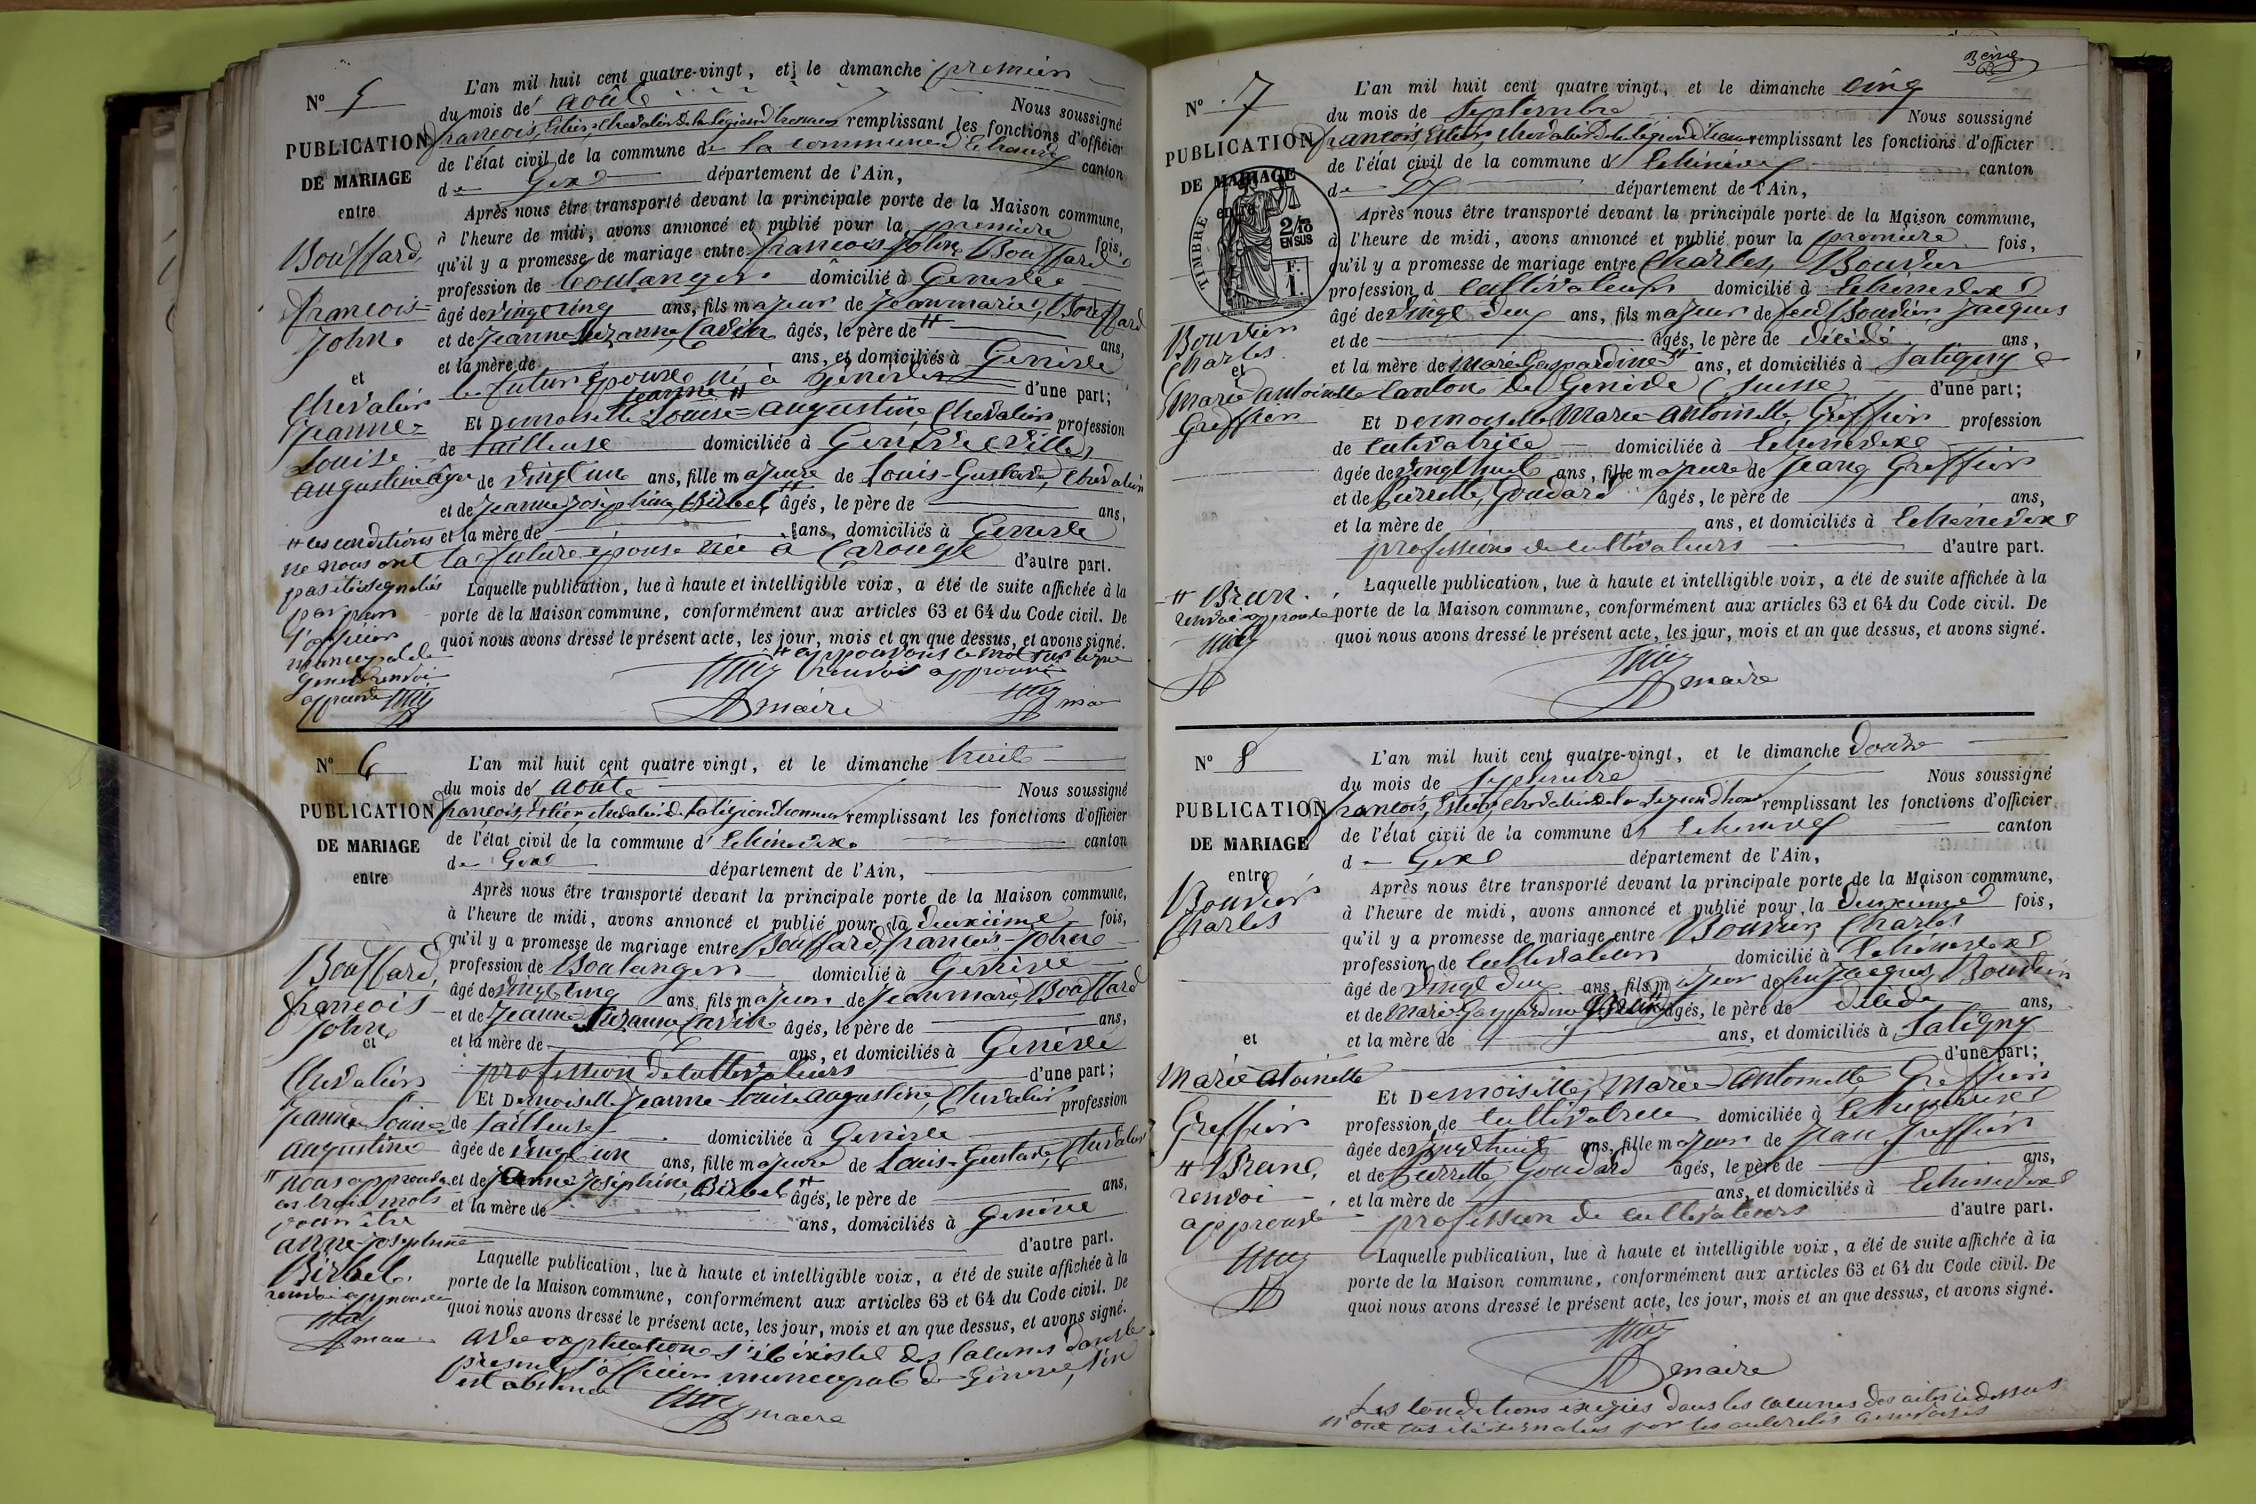 N° 5
PUBLICATION
DE MARIAGE
entre
Bouffard,
françois-
John.
et
Chevalier
Jeanne-
Louise
augustine âgée
# les conditions
ne nous ont
pas été signalés
par
l'officier
municipal de
renvoi
approuvé
L'an mil huit cent quatre-vingt, et le dimanche premier
du mois de août Nous soussigné
françois, Chevalier de la légion d'honneur remplissant les fonctions d'officier
de l'état civil de la commune de la commune d' canton
de Gex département de l'Ain,
Après nous être transporté devant la principale porte de la Maison commune,
à l'heure de midi, avons annoncé et publié pour la première fois,
qu'il y a promesse de mariage entre francois John Bouffard
profession de boulanger domicilié à Genève
âgé de vingt cinq ans, fils majeur de Jean marie, Bouffard
et de Jeanne Suzanne, Cavin âgés, le père de # ans,
et la mère de ans, et domiciliés à Genève
le futur époux né à Genève d'une part;
Jeanne #
Et Demoiselle Louise-augustine, Chevalier profession
de tailleuse domiciliée à Genève ville
de vingt un ans, fille majeure de Louis-Gustave, Chevalier
et de Jeanne Joséphine, # âgés, le père de ans,
et la mère de ans, domiciliés à Genève
la future épouse née à Carouge d'autre part.
Laquelle publication, lue à haute et intelligible voix, a été de suite affichée à la
porte de la Maison commune, conformément aux articles 63 et 64 du Code civil. De
quoi nous avons dressé le présent acte, les jour, mois et an que dessus, et avons signé.
# approuvons le mot sur ligne
renvoi approuvé
maire
N° 6
PUBLICATION
DE MARIAGE
entre
Bouffard,
francois
John
et
Chevalier
Jeanne Louise
augustine
# nous approuvons
ces trois mots
pour être
anne-Josephine
renvoi approuvé
L'an mil huit cent quatre vingt, et le dimanche huit
du mois de août Nous soussigné
françois, chevalier de la légion d'honneur remplissant les fonctions d'officier
de l'état civil de la commune d' Echenevex canton
de Gex département de l'Ain,
Après nous être transporté devant la principale porte de la Maison commune,
à l'heure de midi, avons annoncé et publié pour la deuxième fois,
qu'il y a promesse de mariage entre Bouffard, francois-John
profession de Boulanger domicilié à Genève
âgé de vingt cinq ans, fils majeur de Jean marie Bouffard
et de Jeanne Suzanne, Cavin âgés, le père de ans,
et la mère de ans, et domiciliés à Genève
profession de cultivateurs d'une part;
Et Demoiselle Jeanne-Louise augustine, Chevalier profession
de tailleuse domiciliée à Genève
âgée de vingt un ans, fille majeure de Louis-Gustave, Chevalier
et de anne Joséphine, # âgés, le père de ans,
et la mère de ans, domiciliés à Genève
d'autre part.
Laquelle publication, lue à haute et intelligible voix, a été de suite affichée à la
porte de la Maison commune, conformément aux articles 63 et 64 du Code civil. De
quoi nous avons dressé le présent acte, les jour, mois et an que dessus, et avons signé.
avec explication s'il existe des lacunes dans le
présent, l'officier municipal de Genève, s'en
est abstenu
maire
N° 7
PUBLICATION
DE MARIAGE
entre
TIMBRE
2/10
EN SUS
F.
1.
Bouvier
Charles
et
Marie antoinette
Greffier
# Brun.
renvoi approuvé
L'an mil huit cent quatre vingt, et le dimanche cinq
du mois de Septembre Nous soussigné
francois, Chevalier de la légion d'honneur remplissant les fonctions d'officier
de l'état civil de la commune d' Echenevex canton
de département de l'Ain,
Après nous être transporté devant la principale porte de la Maison commune,
à l'heure de midi, avons annoncé et publié pour la première fois,
qu'il y a promesse de mariage entre Charles, Bouvier
profession d cultivateur domicilié à Echenevex
âgé de vingt deux ans, fils majeur de feu Bouvier Jacques
et de âgés, le père de décédé ans,
et la mère de Marie Gaspardine # ans, et domiciliés à Satigny
Canton de Genève (Suisse d'une part;
Et Demoiselle Marie-antoinette, Greffier profession
de cultivatrice domiciliée à Echenevex
âgée de vingt huit ans, fille majeure de Jean, Greffier
et de Pierrette, Goudard âgés, le père de ans,
et la mère de ans, et domiciliés à Echenevex
profession de cultivateurs d'autre part.
Laquelle publication, lue à haute et intelligible voix, a été de suite affichée à la
porte de la Maison commune, conformément aux articles 63 et 64 du Code civil. De
quoi nous avons dressé le présent acte, les jour, mois et an que dessus, et avons signé.
maire
N° 8
PUBLICATION
DE MARIAGE
entre
Bouvier
Charles
et
Marie Antoinette
Greffier
# Brun,
renvoi
approuvé
L'an mil huit cent quatre-vingt, et le dimanche douze
du mois de septembre Nous soussigné
francois, chevalier de la Legion d'hon remplissant les fonctions d'officier
de l'état civil de la commune d' Echenevex canton
d Gex département de l'Ain,
Après nous être transporté devant la principale porte de la Maison commune,
à l'heure de midi, avons annoncé et publié pour la deuxieme fois,
qu'il y a promesse de mariage entre Bouvier Charles
profession de cultivateur domicilié à Echenevex
âgé de vingt deux ans, fils majeur de feu Jacques, Bouvier
et de Marie Gaspardine âgés, le père de décédé ans,
et la mère de ans, et domiciliés à Satigny
d'une part;
Et Demoiselle, Marie-antoinette Greffier
profession de cultivatrice domiciliée à Echenevex
âgée de vingt huit ans, fille majeur de Jean Greffier
et de Pierrette Goudard âgés, le père de ans,
et la mère de ans, et domiciliés à Echenevex
profession de cultivateurs d'autre part.
Laquelle publication, lue à haute et intelligible voix, a été de suite affichée à la
porte de la Maison commune, conformément aux articles 63 et 64 du Code civil. De
quoi nous avons dressé le présent acte, les jour, mois et an que dessus, et avons signé.
maire
Les conditions exigées dans les lacunes des actes ci dessus
n'ont pas été signalées par les autorités genevoises